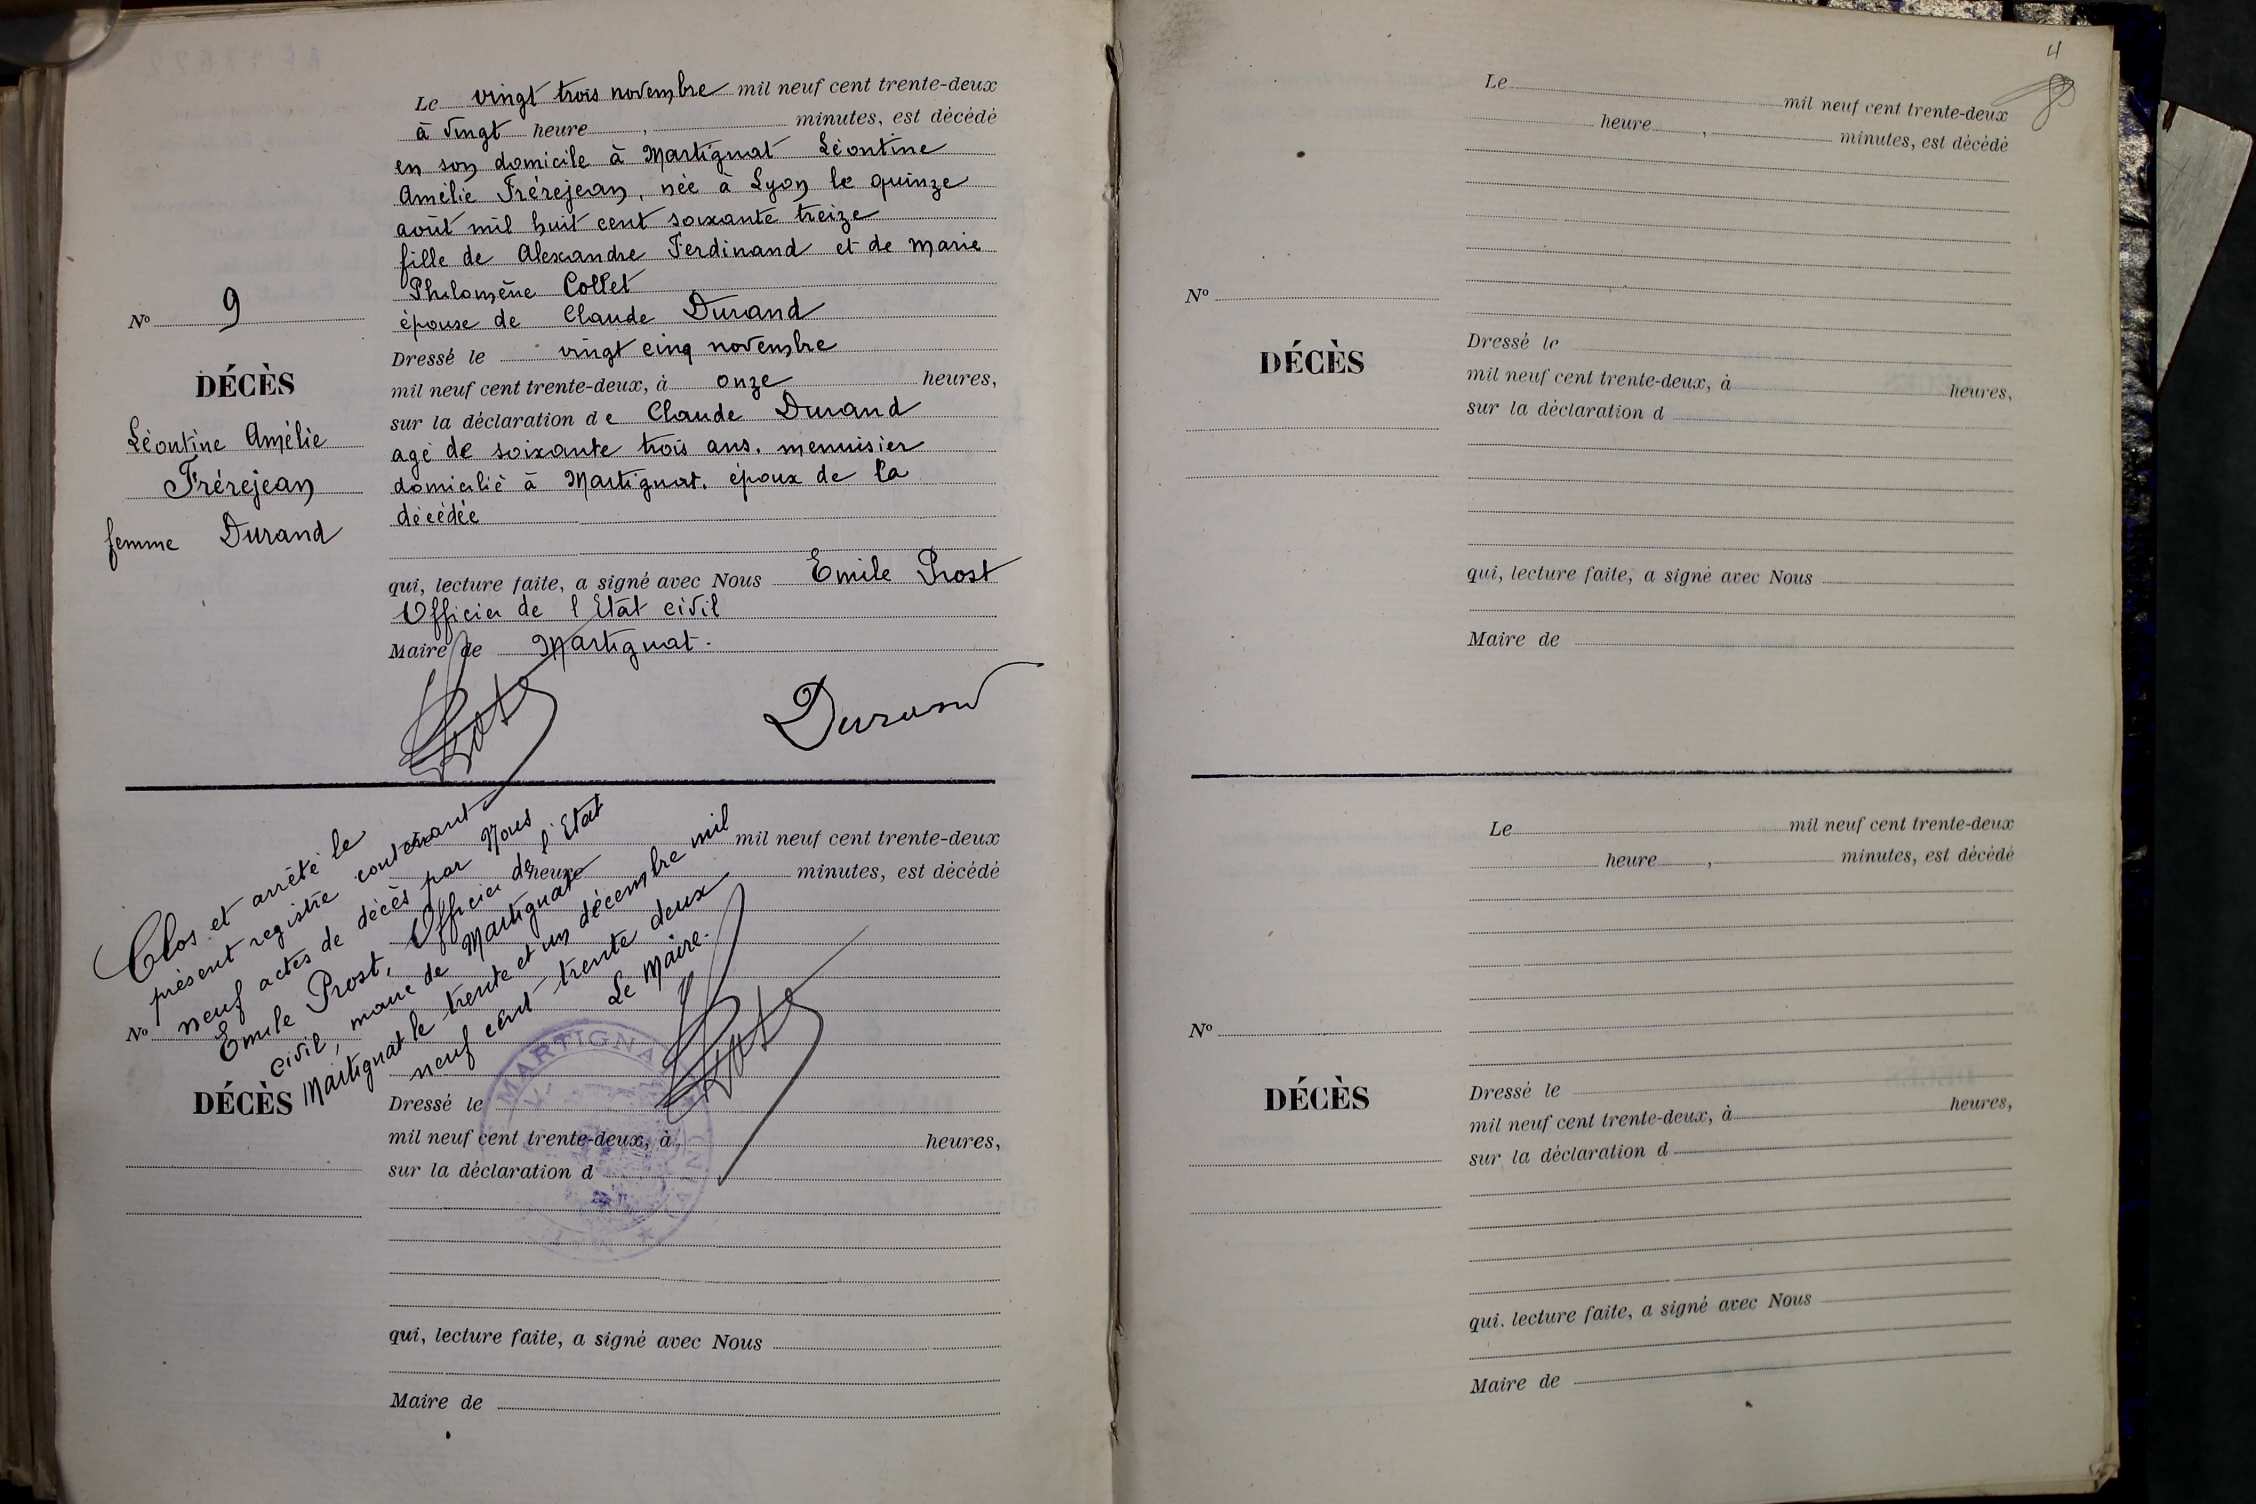 Le vingt trois novembre mil neuf cent trente-deux
à vingt heure , minutes, est décédé
en son domicile à Martignat Léontine
Amélie Frérejean, née à Lyon le quinze
août mil huit cent soixante treize
fille de Alexandre Ferdinand et de Marie
Philomène Collet
épouse de Claude Durand
Dressé le vingt cinq novembre
mil neuf cent trente-deux, à onze heures,
sur la déclaration de Claude Durand
agé de soixante trois ans, menuisier
domicilié à Martignat, époux de la
décédée
qui, lecture faite, a signé avec Nous Emile Prost
Officier de l Etat civil
Maire de Martignat.
Nº 9
DÉCÈS
Léontine Amélie
Frérejean
femme Durand
Prost
Durand
Clos et arrêté le
présent registre contenant
neuf actes de décès par Nous
Emile Prost, Officier de l'Etat
civil, maire de Martignat
Martignat le trente et un décembre mil
neuf cent trente deux
Le Maire.
Prost
MARTIGNAT
mil neuf cent trente-deux
heure minutes, est décédé
Nº
DÉCÈS
Dressé le
mil neuf cent trente-deux, à heures,
sur la déclaration d
qui, lecture faite, a signé avec Nous
Maire de
4
Le mil neuf cent trente-deux
heure , minutes, est décédé
Nº
DÉCÈS
Dressé le
mil neuf cent trente-deux, à heures,
sur la déclaration d
qui, lecture faite, a signé avec Nous
Maire de
Le mil neuf cent trente-deux
heure , minutes, est décédé
Nº
DÉCÈS
Dressé le
mil neuf cent trente-deux, à heures,
sur la déclaration d
qui. lecture faite, a signé avec Nous
Maire de